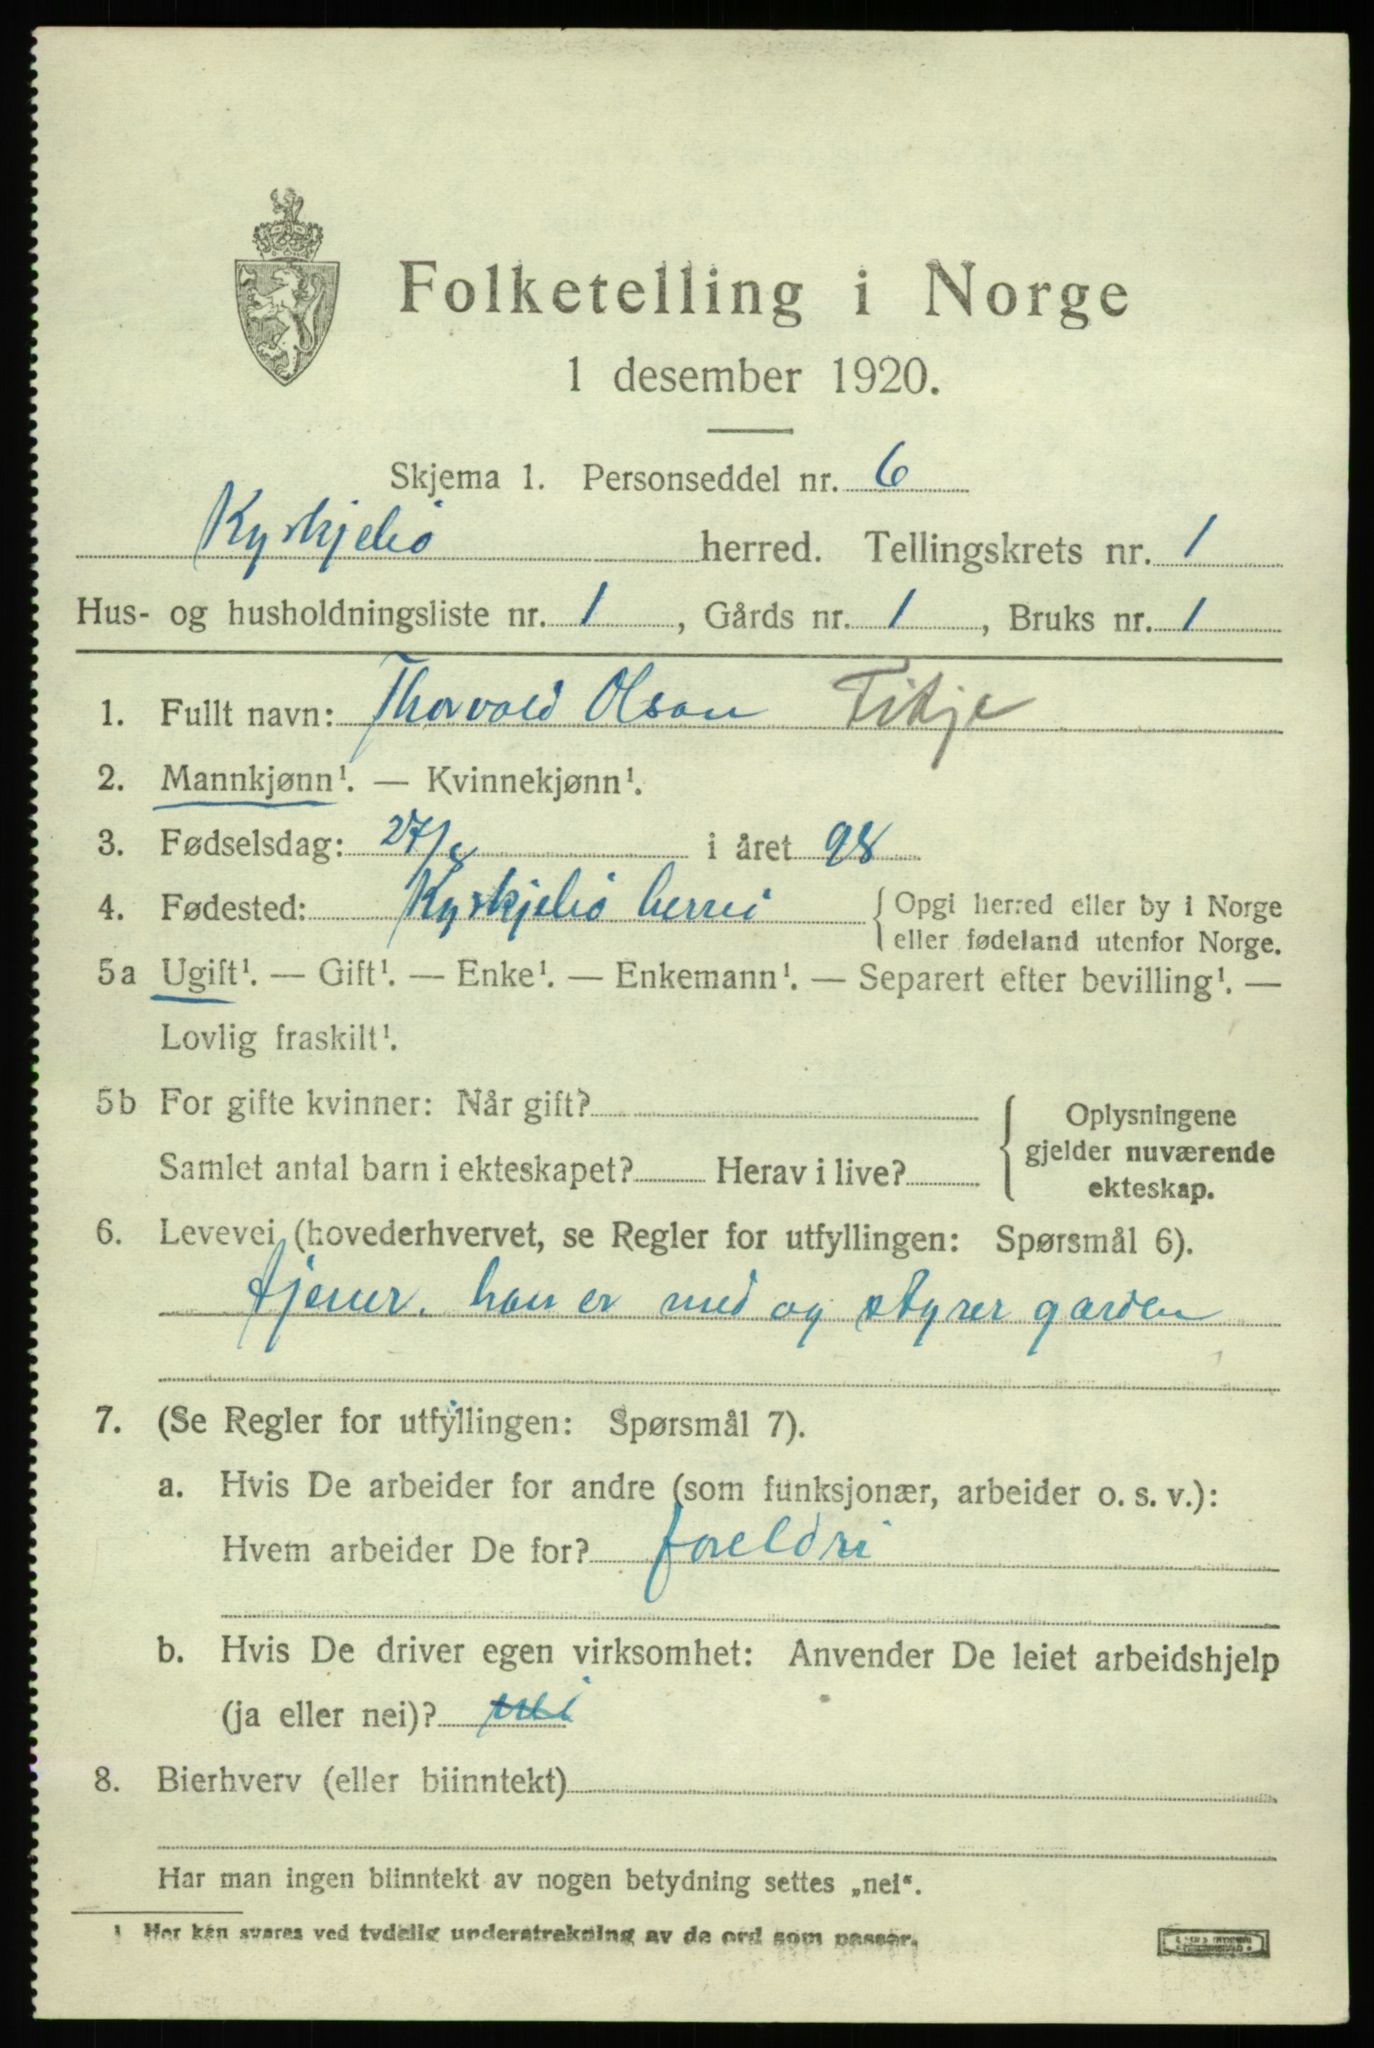 Folketelling i Norge
1 desember 1920.
Skjema 1. Personseddel nr. 6
Kyrkjebø herred. Tellingskrets nr. 1
Hus- og husholdningsliste nr. 1, Gårds nr. 1, Bruks nr. 1
1. Fullt navn: Thorvald Olson
2. Mannkjønn¹. — Kvinnekjønn¹.
3. Fødselsdag: 27/8 i året 98
4. Fødested: Kyrkjebø herred { Opgi herred eller by i Norge
eller fødeland utenfor Norge.
5a Ugift¹. — Gift¹. — Enke¹. — Enkemann¹. — Separert efter bevilling¹. —
Lovlig fraskilt¹.
5b For gifte kvinner: Når gift?
Samlet antal barn i ekteskapet? Herav i live?
Oplysningene
gjelder nuværende
ekteskap.
6. Levevei (hovederhvervet, se Regler for utfyllingen: Spørsmål 6).
tjener. han er med og styrer garden
7. (Se Regler for utfyllingen: Spørsmål 7).
a. Hvis De arbeider for andre (som funksjonær, arbeider o. s. v.):
Hvem arbeider De for? foreldri
b. Hvis De driver egen virksomhet: Anvender De leiet arbeidshjelp
(ja eller nei)? nei
8. Bierhverv (eller biinntekt)
Har man ingen biinntekt av nogen betydning settes „nei“.
¹ Her kan svares ved tydelig understrekning av de ord som passer.